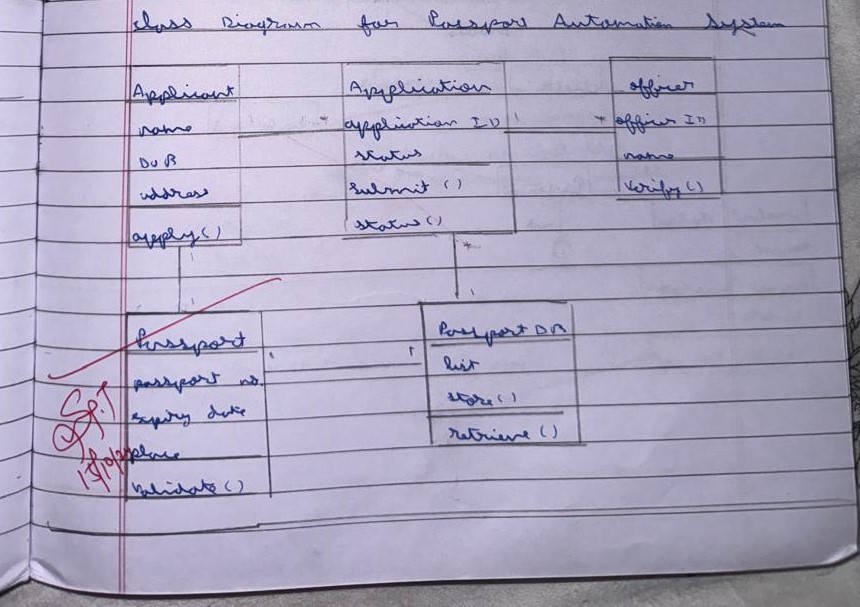 Class Diagram for Passport Automation System
Applicant
name
DOB
address
apply()
Application
application ID
status
submit()
status()
officer
officer ID
name
verify()
1 *
1 *
1
1
*
1
Passport
passport no.
expiry date
place
validate()
1 1
Passport DB
list
store()
retrieve()